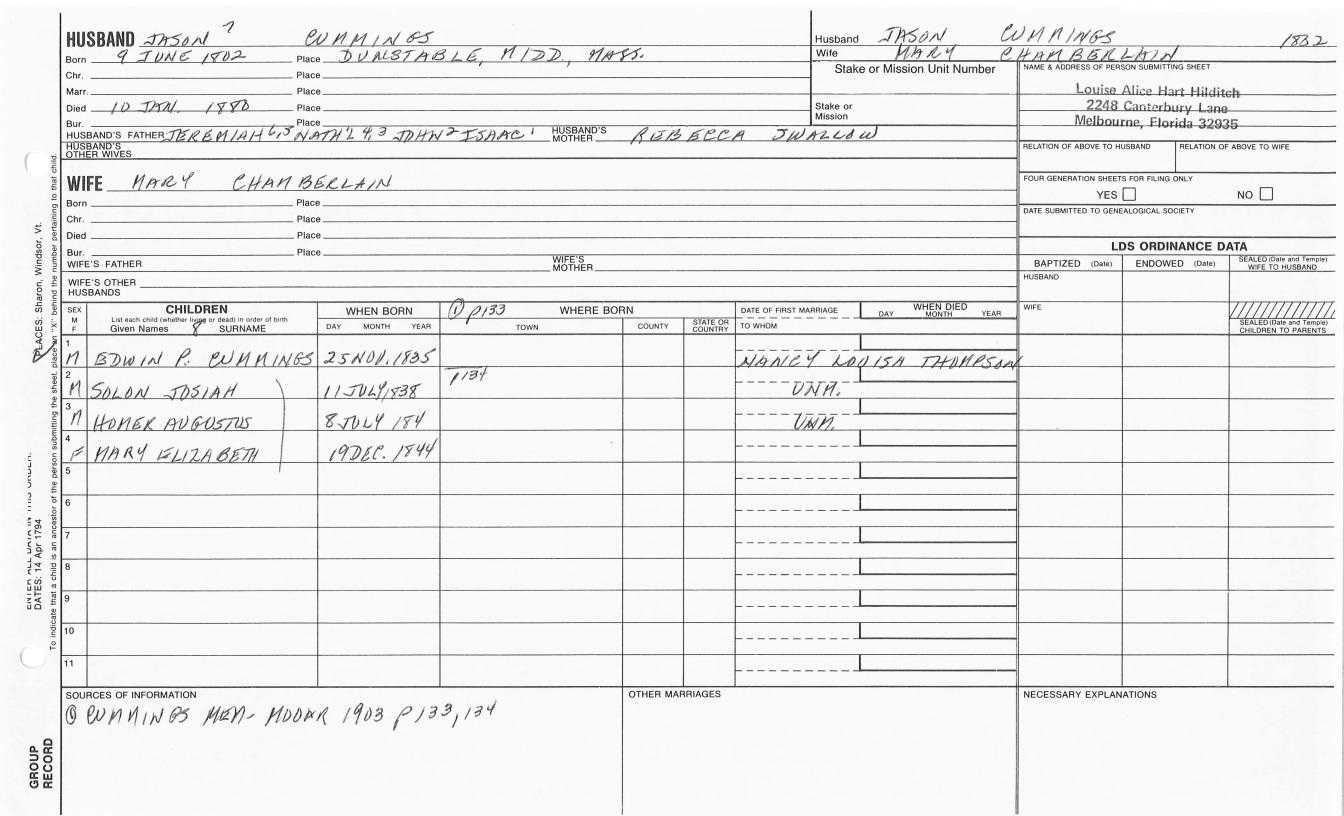 HUSBAND JASON 7 CUMMINGS
Born 9 JUNE 1802 Place DUNSTABLE, MIDD, MASS.
Chr. Place
Marr. Place
Died 10 JAN. 1880 Place
Bur. Place
HUSBAND'S FATHER JEREMIAH 6,5 NATH'L 4,3 JOHN 2 ISAAC 1 HUSBAND'S MOTHER REBECCA SWALLOW
HUSBAND'S OTHER WIVES
WIFE MARY CHAMBERLAIN
Born Place
Chr. Place
Died Place
Bur. Place
WIFE'S FATHER WIFE'S MOTHER
WIFE'S OTHER HUSBANDS
Husband JASON CUMMINGS 1832
Wife MARY CHAMBERLAIN
Stake or Mission Unit Number
Stake or Mission
NAME & ADDRESS OF PERSON SUBMITTING SHEET
Louise Alice Hart Hilditch
2248 Canterbury Lane
Melbourne, Florida 32935
RELATION OF ABOVE TO HUSBAND RELATION OF ABOVE TO WIFE
FOUR GENERATION SHEETS FOR FILING ONLY
YES NO
DATE SUBMITTED TO GENEALOGICAL SOCIETY
LDS ORDINANCE DATA
BAPTIZED (Date) ENDOWED (Date) SEALED (Date and Temple) WIFE TO HUSBAND
HUSBAND
WIFE
SEALED (Date and Temple) CHILDREN TO PARENTS
SEX M F
CHILDREN
List each child (whether living or dead) in order of birth
Given Names 8 SURNAME
WHEN BORN
DAY MONTH YEAR
① p133 WHERE BORN
TOWN COUNTY STATE OR COUNTRY
DATE OF FIRST MARRIAGE
TO WHOM
WHEN DIED
DAY MONTH YEAR
1 M EDWIN P. CUMMINGS 25 NOV. 1835 NANCY LOUISA THOMPSON
2 M SOLON JOSIAH 11 JULY 1838 p134 UNM.
3 M HOMER AUGUSTUS 8 JULY 184 UNM.
4 F MARY ELIZABETH 19 DEC. 1844
5
6
7
8
9
10
11
SOURCES OF INFORMATION
① CUMMINGS MEM- MOOAR 1903 p133, 134
OTHER MARRIAGES
NECESSARY EXPLANATIONS
PLACES: Sharon, Windsor, Vt.
To indicate that a child is an ancestor of the person submitting the sheet, place an "X" behind the number pertaining to that child.
ENTER ALL DATA IN THIS ORDER:
DATES: 14 Apr 1794
GROUP RECORD